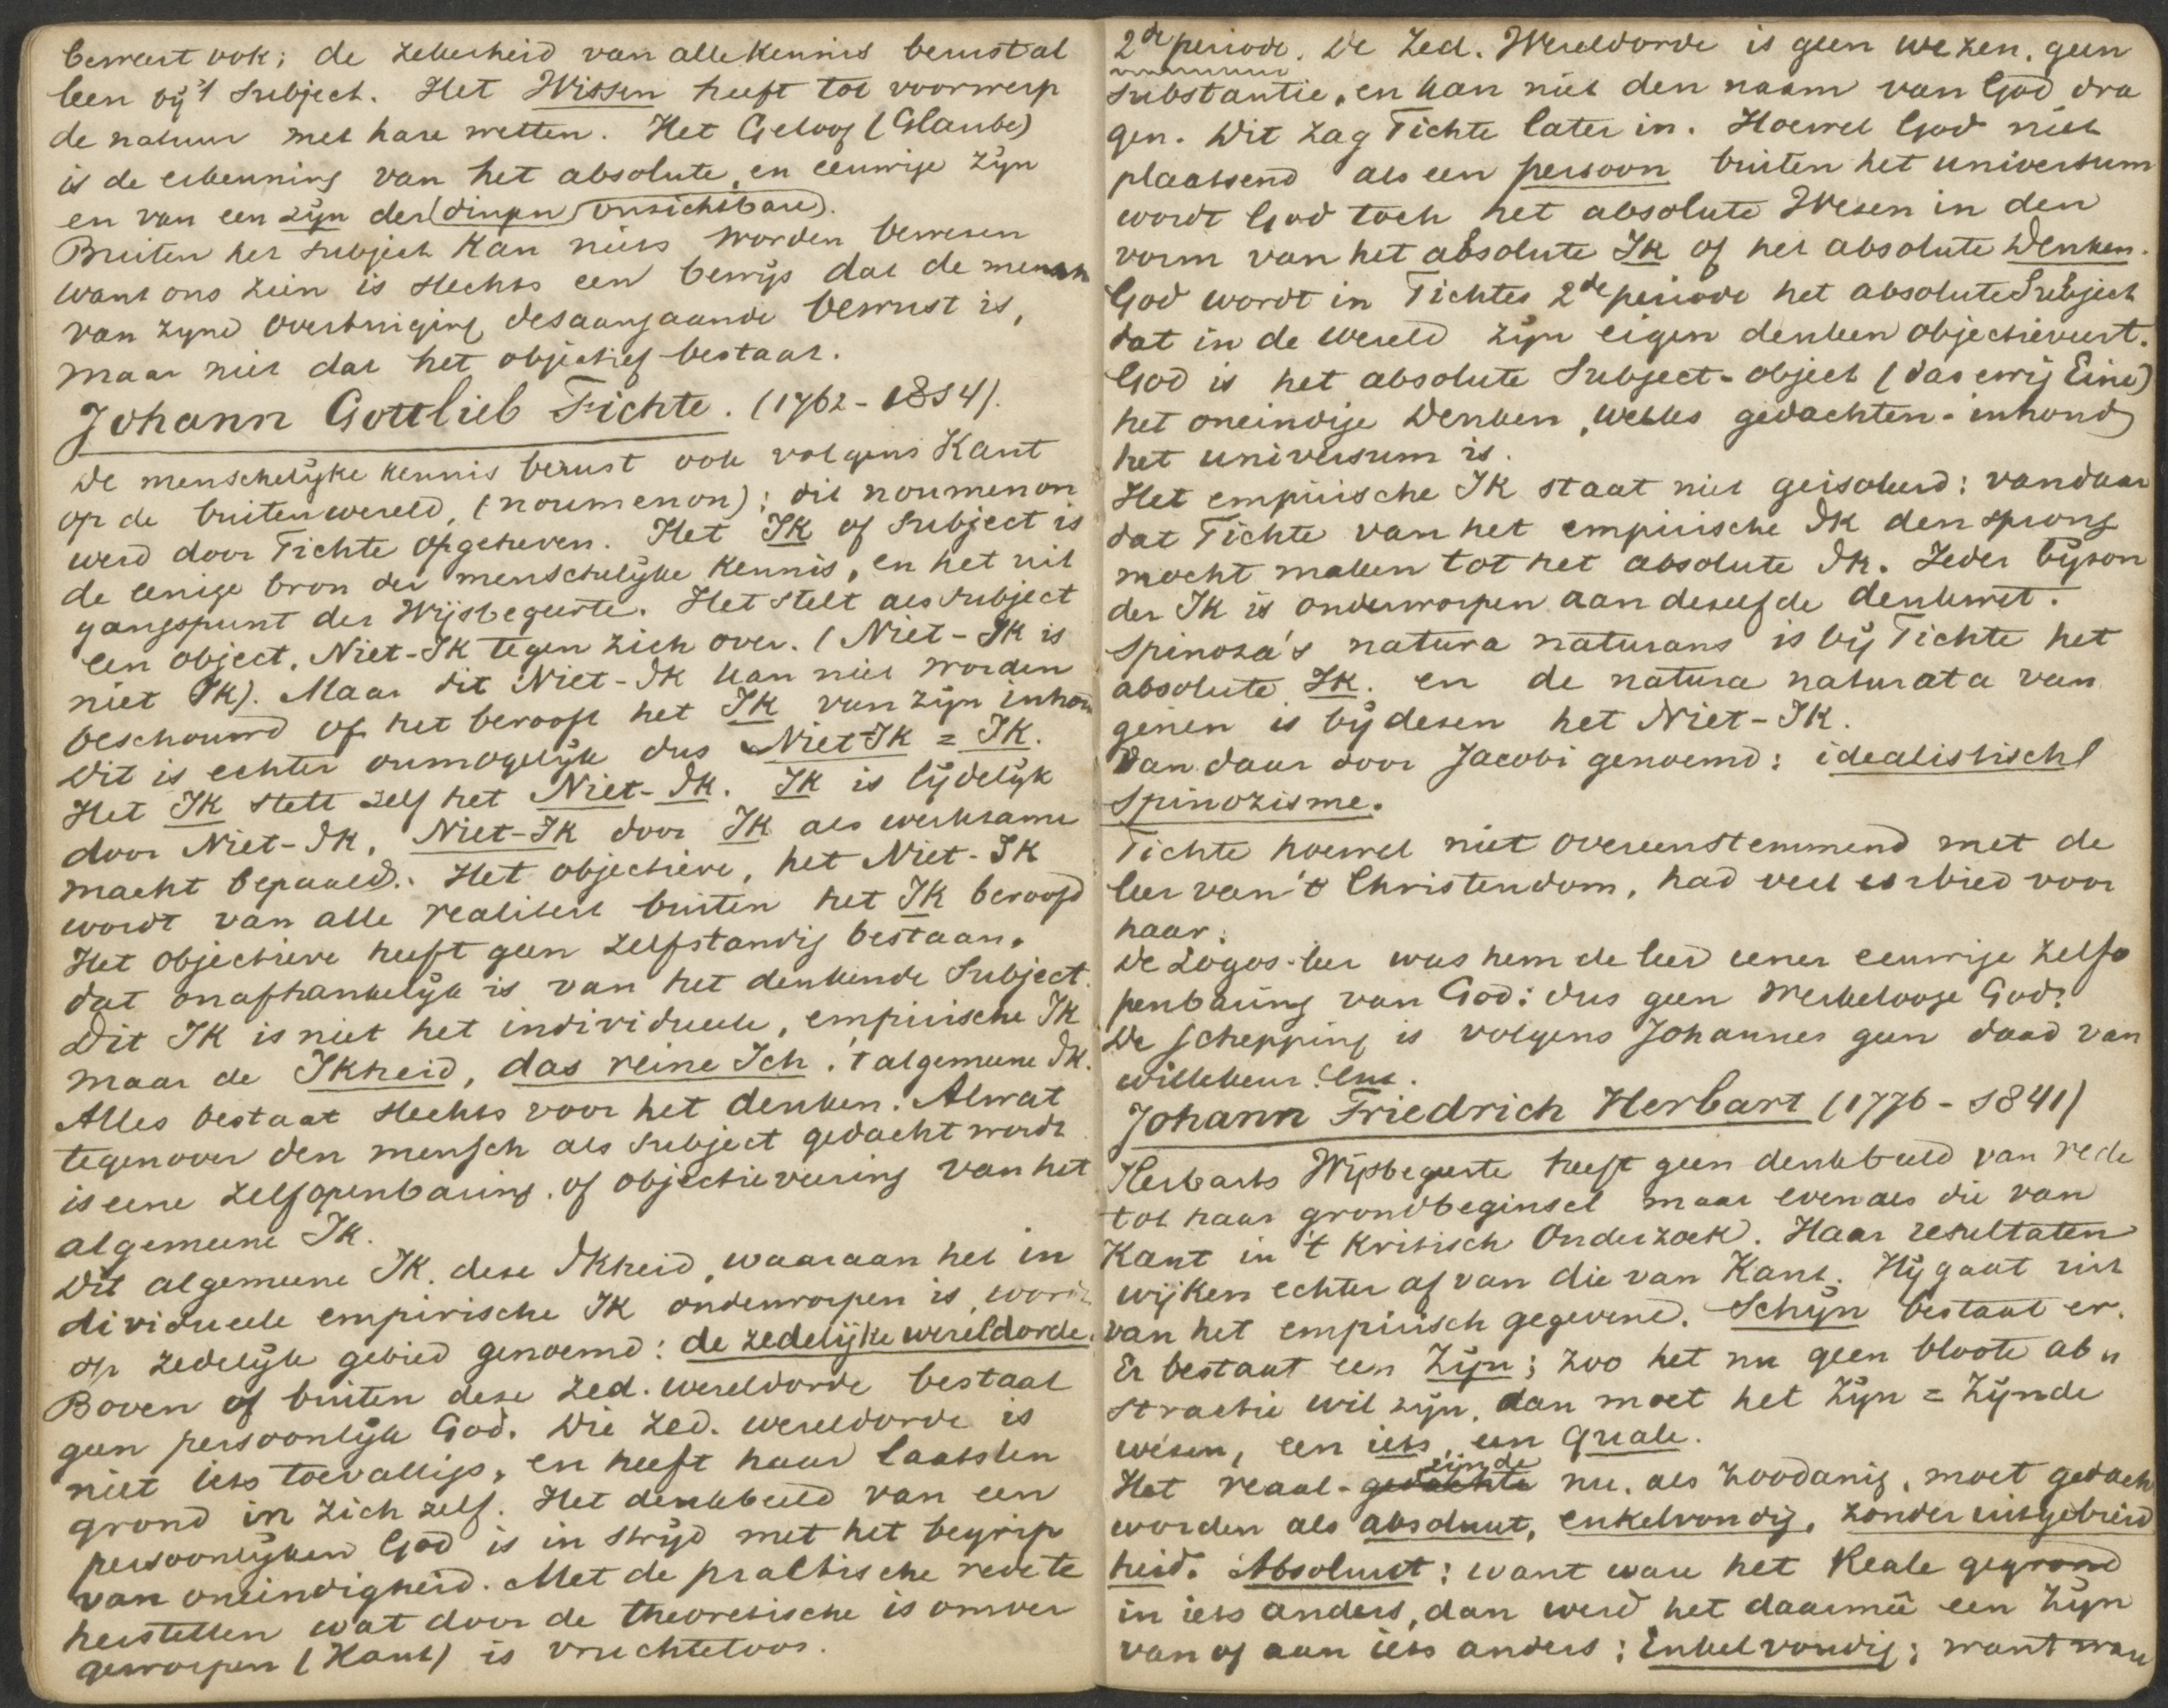 beweert ook; de zekerheid van alle kennis berust al
leen bij 't Subject. Het Wissen heeft tot voorwerp
de natuur met hare wetten. Het Geloof (Glaube)
is de erkenning van het absolute en eeuwige zijn
en van een zijn der (dingen onzichtbare).
Buiten het subject kan niets worden bewezen
want ons zien is slechts een bewijs dat de mensch
van zijne overtuiging desaangaande bewust is,
maar niet dat het objectief bestaat.
Johann Gottlieb Fichte. (1762-1814).
De menschelijke kennis berust ook volgens Kant
op de buitenwereld, (noumenon); dit noumenon
werd door Fichte opgeheven. Het Ik of Subject is
de eenige bron der menschelijke kennis, en het uit
gangspunt der Wijsbegeerte. Het stelt als subject
een object, Niet-Ik tegen zich over. (Niet-Ik is
niet Ik). Maar dit Niet-Ik kan niet worden
beschouwd of het berooft het Ik van zijn inhou
Dit is echter onmogelijk dus Niet Ik = Ik.
Het Ik stelt zelf het Niet-Ik. Ik is lijdelijk
door Niet-Ik, Niet-Ik door Ik als werkzame
macht bepaald. Het objectieve, het Niet-Ik
wordt van alle realiteit buiten het Ik beroofd
Het objectieve heeft geen zelfstandig bestaan,
dat onafhankelijk is van het denkende Subject.
Dit IK is niet het individueele, empirische Ik
maar de Ikheid, das reine Ich, 't algemeene Ik.
Alles bestaat slechts voor het denken. Alwat
tegenover den mensch als subject gedacht wordt
is eene zelfopenbaring, of objectieveering van het
algemeene Ik.
Dit algemeene Ik, deze Ikheid, waaraan het in
dividueele empirische Ik onderworpen is, wordt
op zedelijk gebied genoemd: de zedelijke wereldorde.
Boven of buiten deze zed. wereldorde bestaat
geen persoonlijk God. Die zed. wereldorde is
niet iets toevalligs, en heeft haar laatsten
grond in zich zelf. Het denkbeeld van een
persoonlijken God is in strijd met het begrip
van oneindigheid. Met de praktische rede te
herstellen wat door de theoretische is omver
geworpen (Kant) is vruchteloos.
2de periode. De Zed. Wereldorde is geen wezen, geen
substantie, en kan niet den naam van God dra
gen. Dit zag Fichte later in. Hoewel God niet
plaatsend als een persoon buiten het universum
wordt God toch het absolute Wezen in den
vorm van het absolute Ik of het absolute Denken.
God wordt in Fichtes 2de periode het absolute Subject
dat in de wereld zijn eigen denken objectieveert.
God is het absolute Subject-object (das ewig Eine)
het oneindige Denken, welks gedachten-inhoud
het universum is.
Het empirische Ik staat niet geisoleerd; vandaar
dat Fichte van het empirische Ik den sprong
mocht maken tot het absolute Ik. Ieder bijzon
der Ik is onderworpen aan dezelfde denkwet.
Spinoza's natura naturans is bij Fichte het
absolute Ik. en de natura naturata van
genen is bij dezen het Niet-Ik.
Van daar door Jacobi genoemd: idealistisch
Spinozisme.
Fichte hoewel niet overeenstemmend met de
leer van 't Christendom, had veel eerbied voor
haar.
De Logos-leer was hem de leer eener eeuwige zelfo
penbaring van God: dus geen werkelooze God.
De schepping is volgens Johannes geen daad van
willekeur. enz.
Johann Friedrich Herbart (1776-1841)
Herbarts Wijsbegeerte heeft geen denkbeeld van rede
tot haar grondbeginsel maar evenals die van
Kant in 't Kritisch Onderzoek. Haar resultaten
wijken echter af van die van Kant. Hij gaat uit
van het empirisch gegevene. Schijn bestaat er.
Er bestaat een Zijn; zoo het nu geen bloote ab"
stractie wil zijn, dan moet het Zijn = Zijnde
wezen, een iets, een Quale.
Het reaal-gedachte zijnde nu, als zoodanig, moet gedach
worden als absoluut, enkelvoudig, zonder uitgebreid
heid. Absoluut: want ware het Reale gegrond
in iets anders, dan werd het daarmee een Zijn
van of aan iets anders; Enkelvoudig; want ware